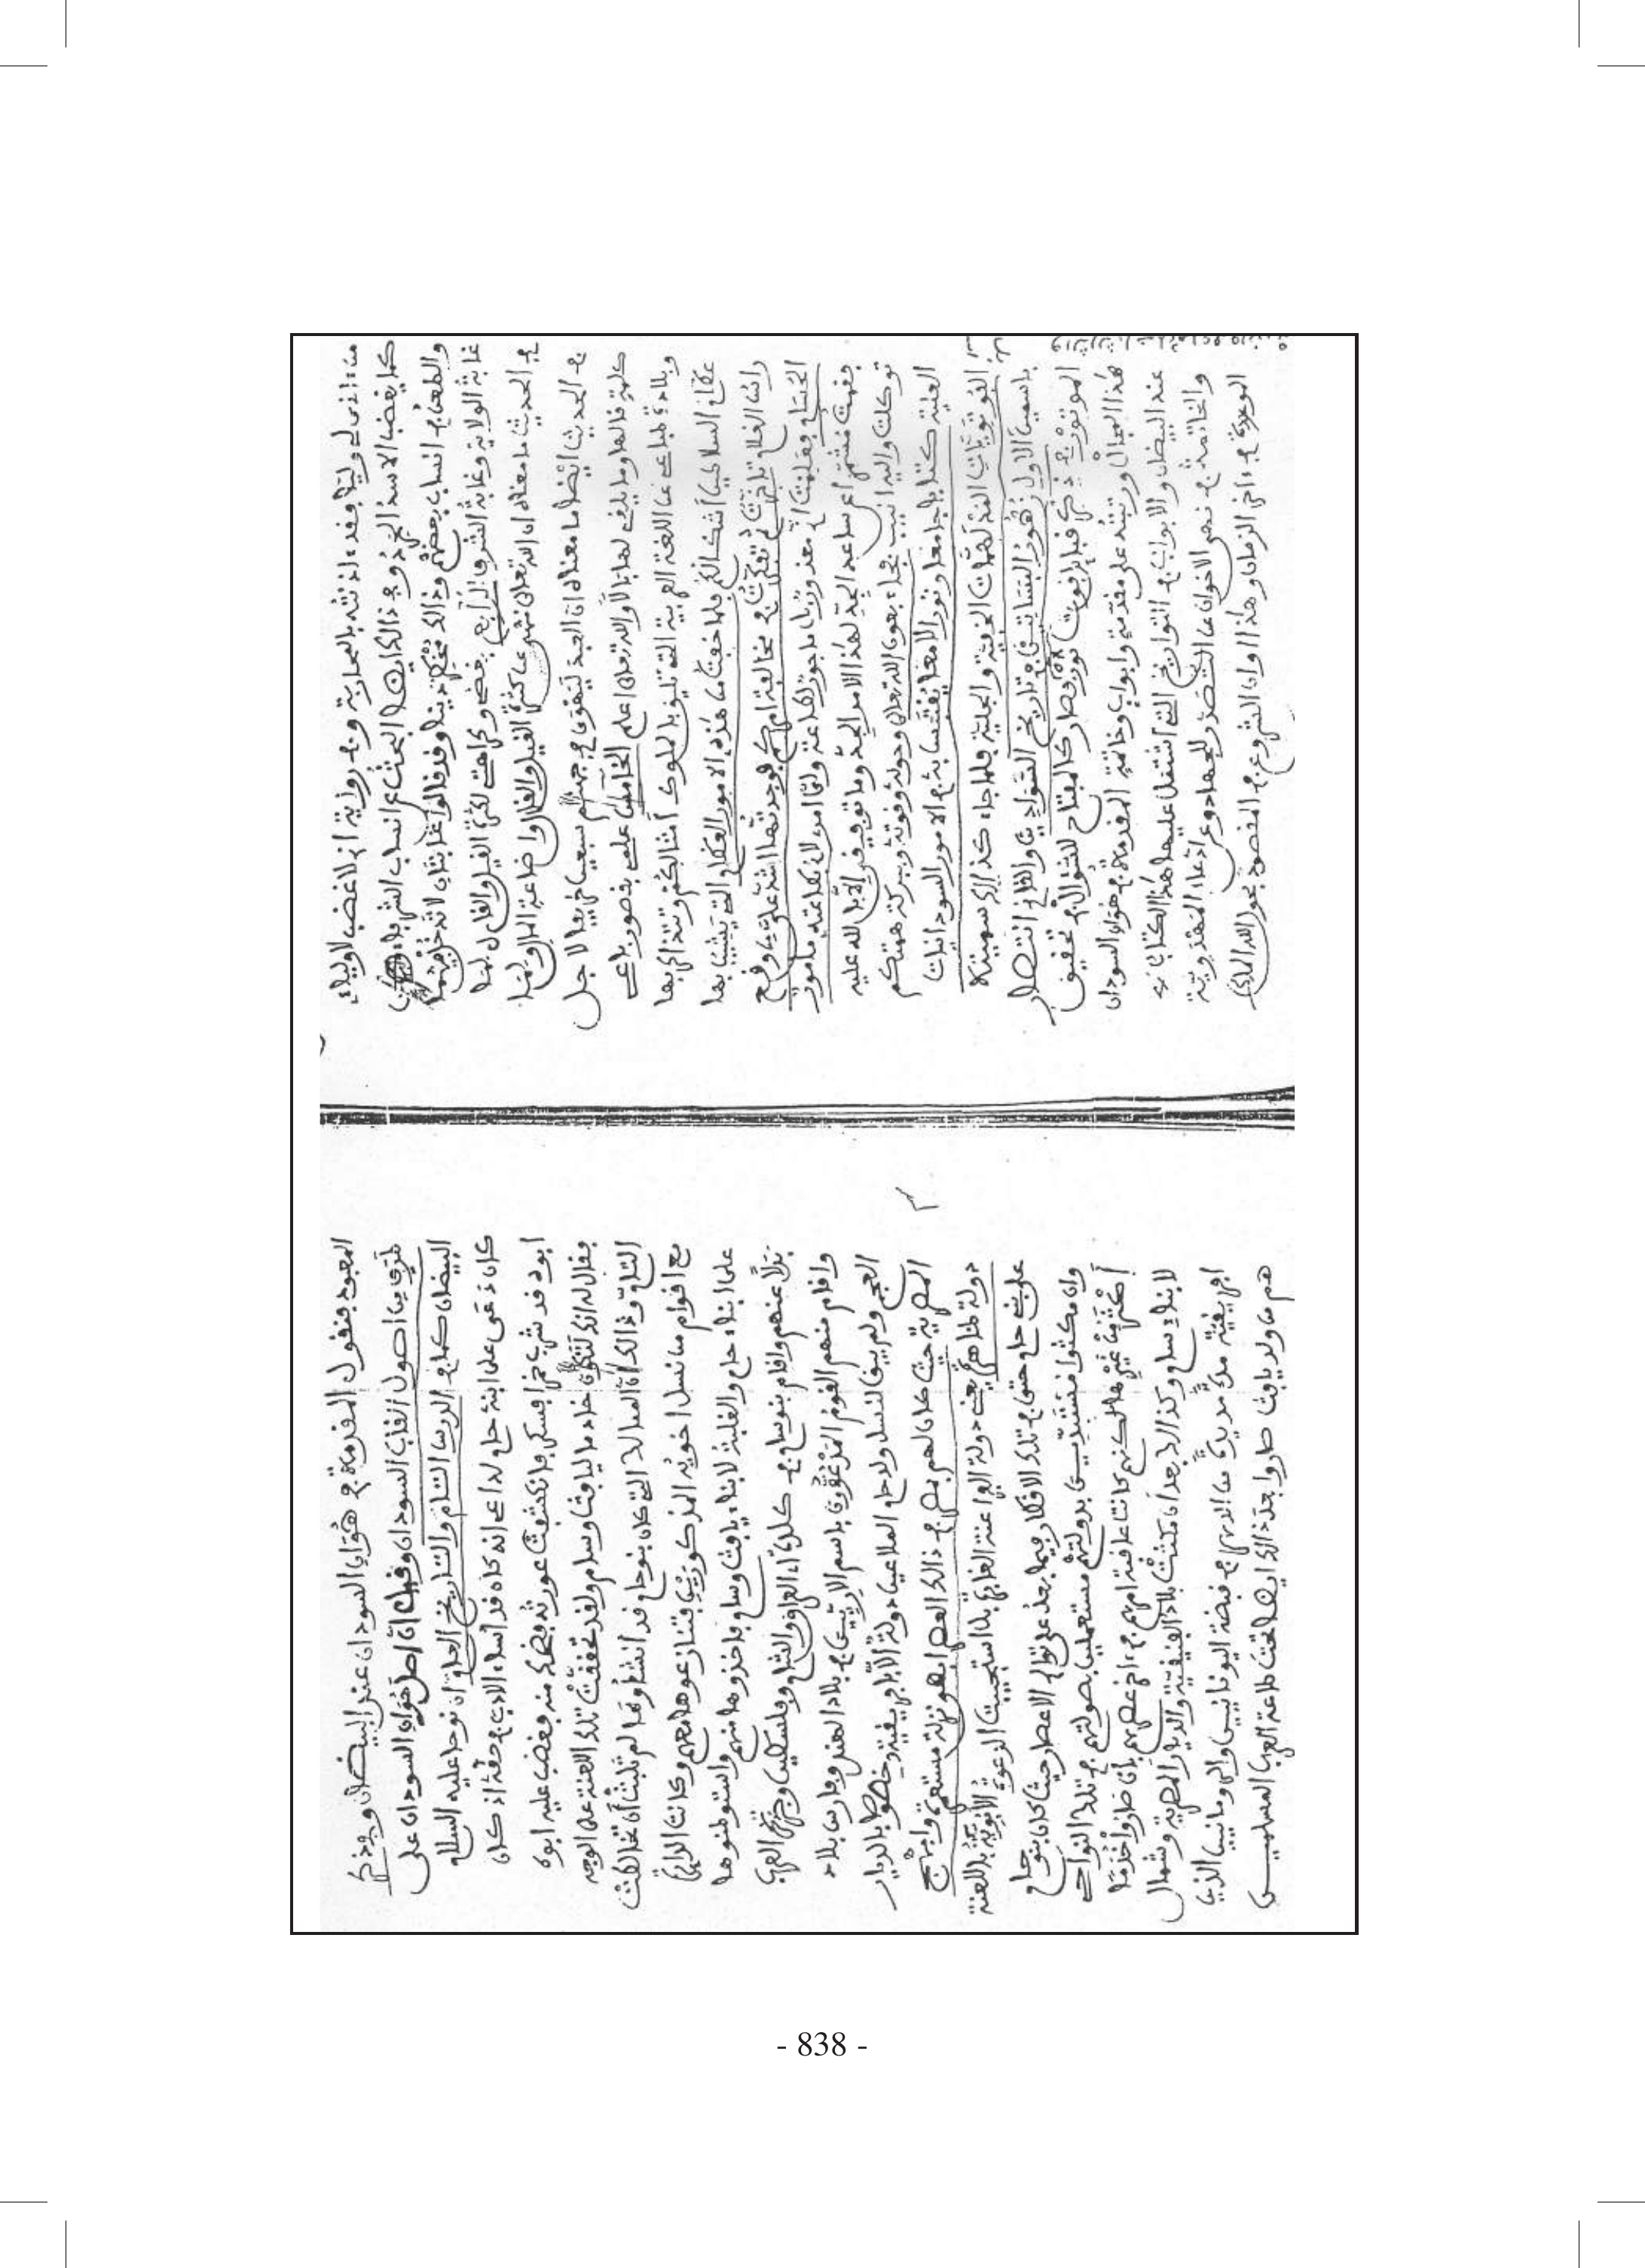 من ءاذى لى وليا فقد ءاذنته بالمحاربة وفى رواية انى لاغضب لاولياءى
كما يغضب الاسد وفى ذالك ايضا البحث عن انساب الشرفاء
والطعن فى انساب بعضهم وذالك منكر دينا وقد قالوا غابتان لا تدخلهما
غابة الولاية وغابة الشرف الرابع بغضى وكراهتى لكثرة القيل والقال لما
فى الحديث ما معناه ان الله تعالى نهى عن كثرة القيل والقال واضاعة المال ولما
فى الحديث ايضا ما معناه ان العبد ليهوى فى جهنم سبعين خريفا لاجل
كلمة قالها وما يلقى لها بالا والله تعالى اعلم الخامس علمى بقصور باعى
وبلادة طباعى عن اللغة العربية التى تليق بالملوك امثالكم وتتذاكر بها
عكاظ السلاطين اشكالكم فلما خفت من هذه الامور العظام التى يشيب بها
راس الغلام تاخرت ثم تفكرت فى مخالفة امركم فوجدتها اشد على من وقع
الحسام فقلت انى معذور بل ماجور لطاعة ولى امر لان طاعته مامور
فقمت مشمرا عن ساعد الجد لهذا الامر المجد وما توفيقى الا بالله عليه
توكلت واليه انيب فجاء بعون الله تعالى وحوله وقوته وببركة همتكم
العلية كتابا جامعا ونورا لامعا يقتبس به فى الامور السودانيات
الفوتويات المذلهمات الخفية والجلية فلما جاء كذالك سميته
باسمين الاول زهور البساتين فى تاريخ السوادين والثانى انتصار
الموتور فى ذكر قبائل فوت تور وصار كالمفتاح للسؤال فى تحقيق
هذا المجال ورتبته على مقدمة وابواب وخاتمة المقدمة فى هؤلاء السودان
عند البيضان والابواب فى التواريخ التى اشتمل عليها هذا الكتاب
والخاتمة فى نهى الاخوان عن التصدر للجهاد وعن ادعاء المهدوية
الموعودة فى ءاخر الزمان وهذا اوان الشروع فى المقصود بعون الله الملك
المعبود فنقول المقدمة فى هؤلاء السودان عند البيضان ويذكر
طرف من اصول انقاب السودان وقبل ان اصل هؤلاء السودان على
البيضان كما فى الدرس التام والتاريخ العام ان نوحا عليه السلام
كان دعى على ابنه حام لداعى انه كان قد اساء الادب فى حقه اذ كان
ابوه قد شرب خمرا فسكر فانكشفت عورته فضحك منه فغضب عليه ابوه
فقال له انك لتكون خادما ليافث وسام ولقد تحققت تلك اللعنة على الوجه
التام وذالك ان الممالك التى كان بنو حام قد انشاوها لم تلبث ان تخالطت
مع اقوام من نسل اخويه المذكورين فتنازعوها معهم وكانت الدائرة
على ابناء حام والغلبة لابناء يافث وسام فاخذوها منهم واستوطنوها
بدلا عنهم واقام بنو سام فى كلديا العراق والشام وفلسطين وجزيرة العرب
واقام منهم القوم المدعوون باسم الاريين فى بلاد الهند وفارس بلاد
العجم ولم يبق لنسل ولد حام الملاعين دولة الا بافريقية وخصوصا بالديار
المصرية حيث كان لهم بمصر فى ذالك العصر ابهى منزلة مستعمرة وابهج
دولة ظاهرة يعنى دولة الفراعنة الغابرة بل استجيبت الدعوة الابوية باللعنة
على بنى حام حتى فى تلك الافكار فيما بعد على توالى الاعصار حيث كان بنو حام
وان مكثوا متشبثين بدولتهم مستعملين بصولتهم فى تلك النواحى
اكثر من غيرها لكنهم كانت عاقبة امرهم فى ءاخر عصرهم بان صاروا خدما
لابناء سام وكذالك بعد ان مكثت بلاد الفنيقية والديار المصرية وشمال
افريقية مدة مديدة من الدهر فى قبضة اليونانيين والرومانيين الذين
هم من ولد يافث صاروا بعد ذالك ايضا تحت طاعة العرب المسلمين
- 838 -